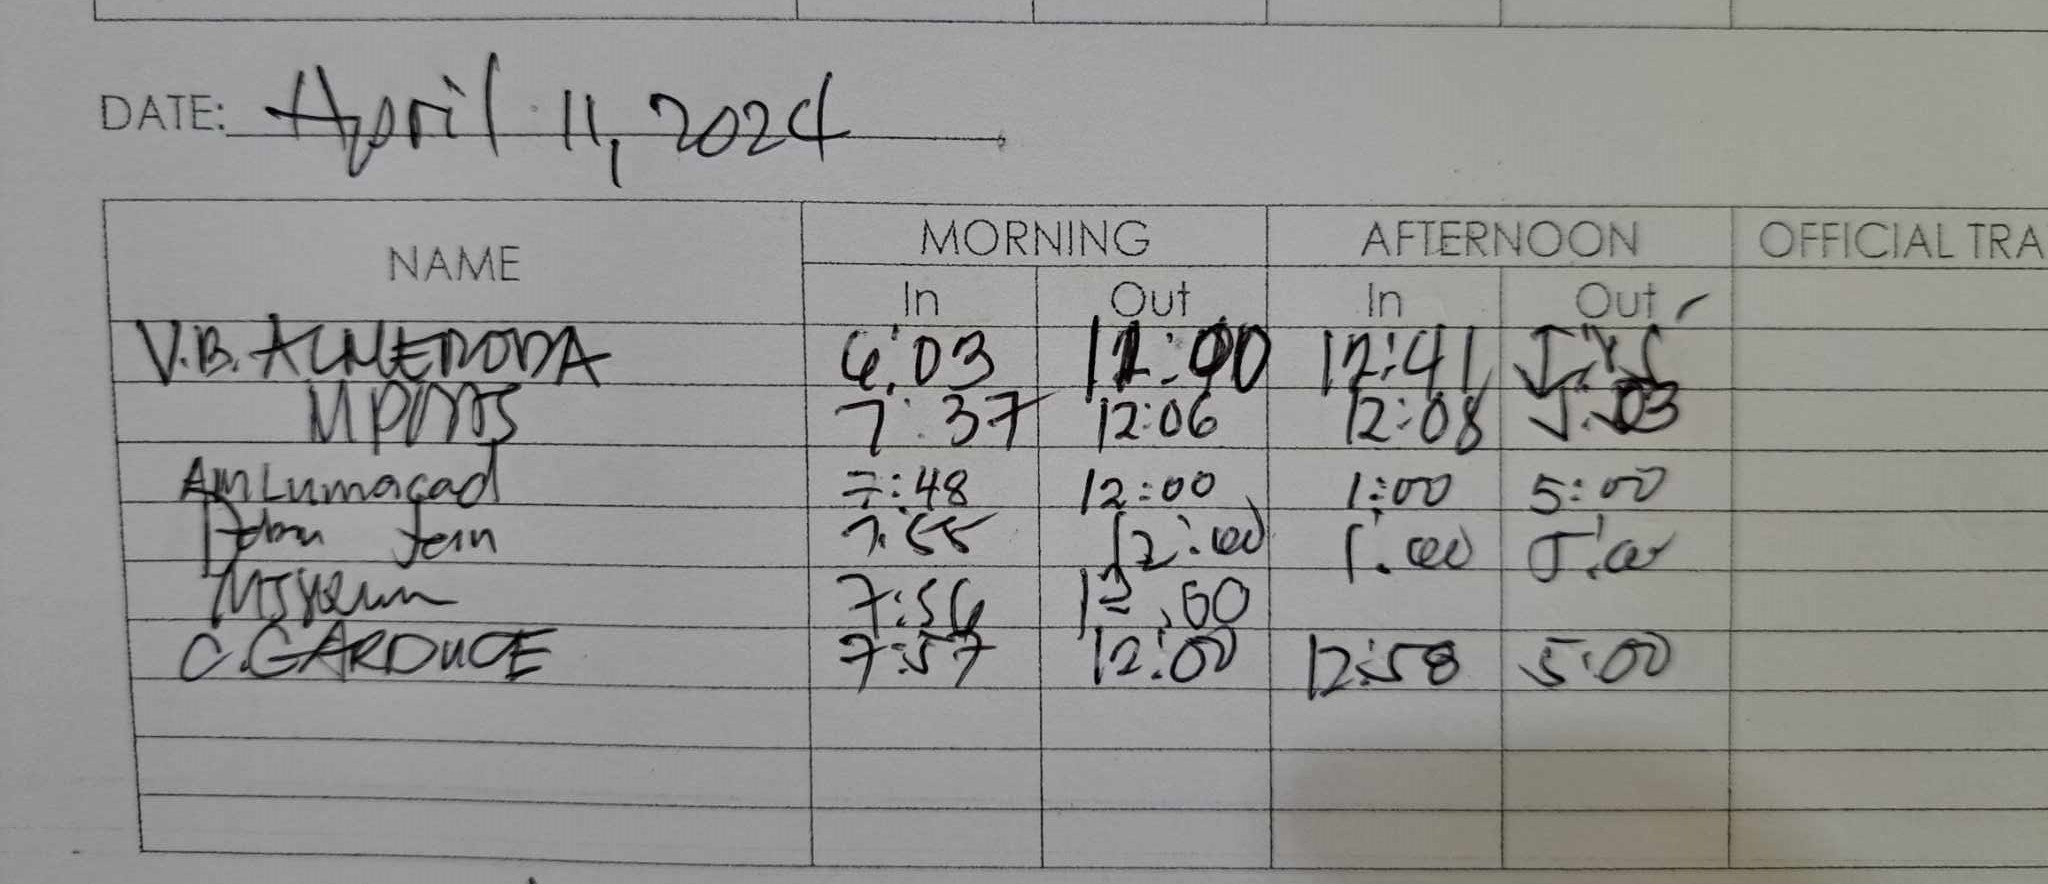 DATE: April 11, 2024
NAME MORNING AFTERNOON OFFICIAL TRA
In Out In Out
V.B. ALMERODA 6:03 12:00 12:41
7:37 12:06 12:08 5:03
AMLumacad 7:48 12:00 1:00 5:00
7:55 12:00 1:00 5:00
7:56 12:00
C. GARDUCE 7:57 12:00 12:58 5:00